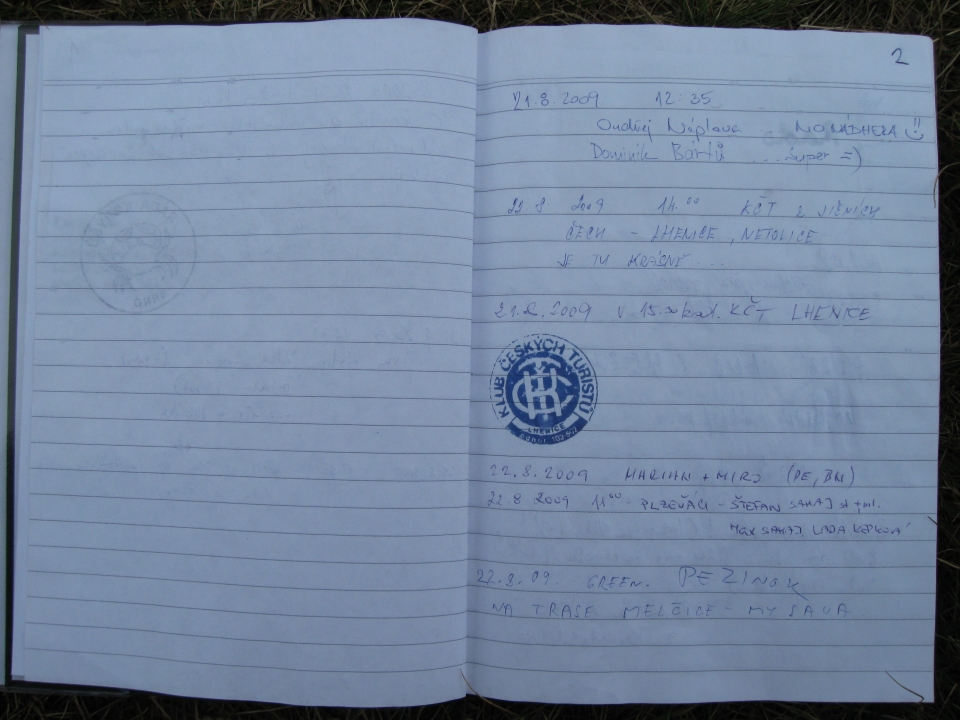 2
21.8.2009 12:35
Ondřej Náplava ... NO NÁDHERA
Dominik Bártů .... Super =)
22 8 2009 14.00 KČT z JIŽNÍCH
ČECH - LHENICE, NETOLICE
JE TU KRÁSNĚ ...
2009 v 15.00 KČT LHENICE
KLUB ČESKÝCH TURISTŮ
KČT
LHENICE
odbor
22.8.2009 MARIAN + MIRO (PE, BN)
22.8 2009 11 00 - PLZEŇÁCI - ŠTEFAN SAHAJ st + ml.
MAX SAHAJ, LADA
22.8.09. GREEN. PEZINOK
NA TRASE - MYJAVA